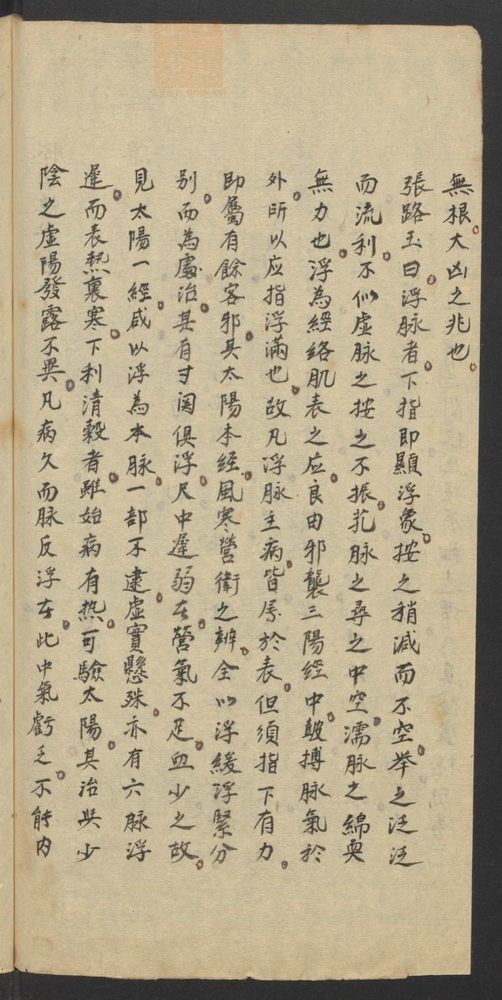 無根大凶之兆也
張路玉曰浮脉者下指即顯浮象按之稍減而不空举之泛泛
而流利不似虚脉之按之不振芤脉之尋之中空濡脉之綿耎
無力也浮為經絡肌表之应良由邪襲三陽經中鼓搏脉氣於
外所以应指浮滿也故凡浮脉主病皆属於表但須指下有力
即屬有餘客邪其太陽本經風寒營衛之辨全以浮緩浮緊分
别而為處治其有寸関俱浮尺中遲弱者營氣不足血少之故
見太陽一經咸以浮為本脉一部不逮虚實懸殊亦有六脉浮
遲而表熱裏寒下利清穀者雖始病有热可驗太陽其治與少
陰之虚陽發露不異凡病久而脉反浮者此中氣虧乏不能内